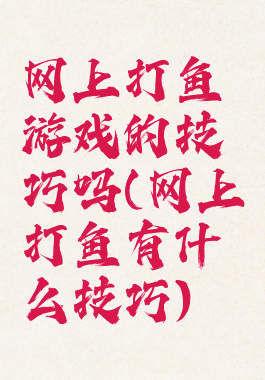 网上打鱼
游戏的技
巧吗(网上
打鱼有什
么技巧)